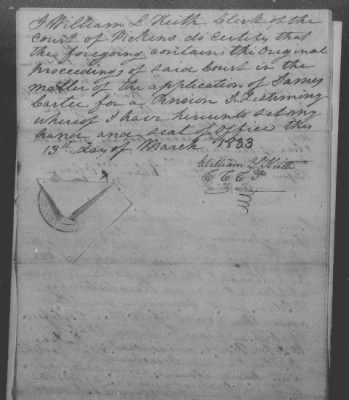 I William L Keith Clerk of the
court of Pickens do Certify that
the foregoing contains the Original
proceedings of said Court in the
matter of the application of James
Carlee for a Pension In Testimony
whereof I have hereunto set my
hand and seal of Office this
13th day of March 1833
William L Keith
C. C. C. P